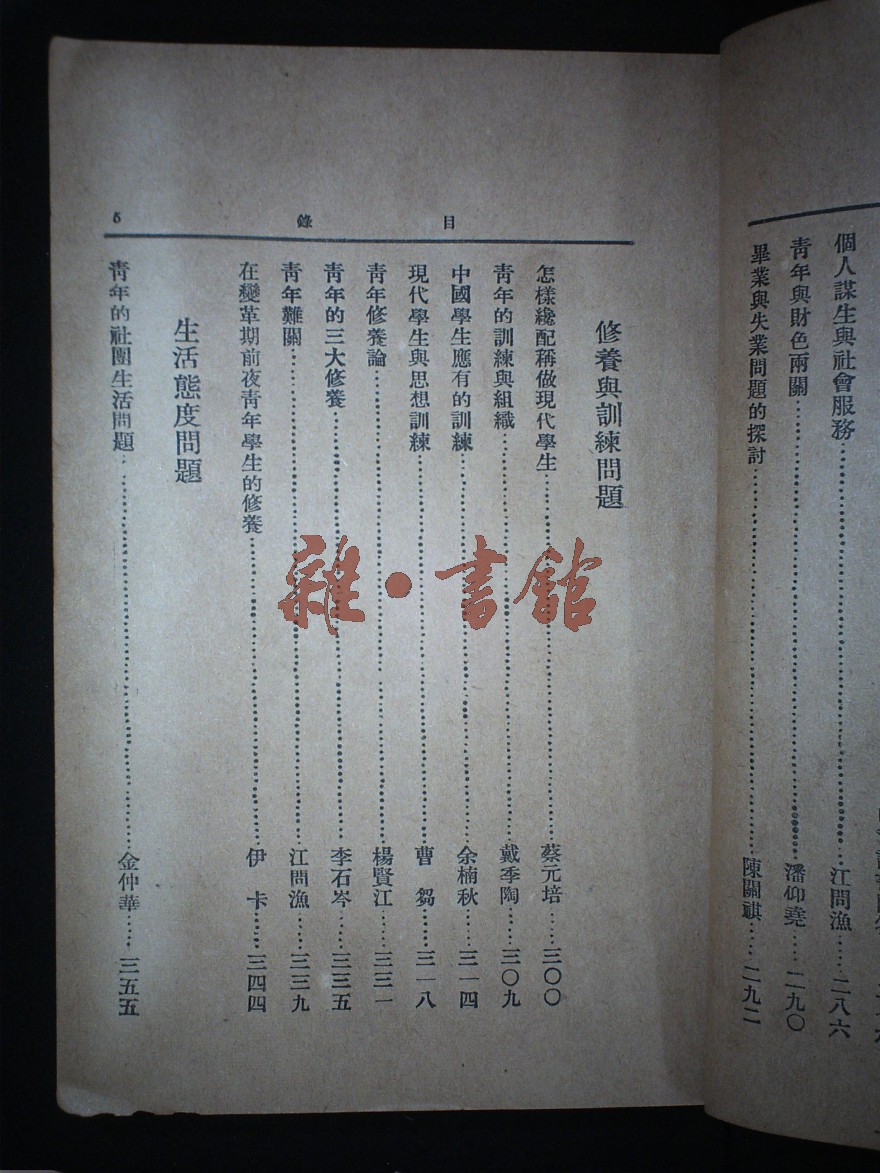 個人謀生與社會服務……江問漁……二八六
青年與財色兩關……潘仰堯……二九〇
畢業與失業問題的探討……陳關祺……二九二
目錄 5
修養與訓練問題
怎樣纔配稱做現代學生……蔡元培……三〇〇
青年的訓練與組織……戴季陶……三〇九
中國學生應有的訓練……余楠秋……三一四
現代學生與思想訓練……曹芻……三一八
青年修養論……楊賢江……三三一
青年的三大修養……李石岑……三三五
青年難關……江問漁……三三九
在變革期前夜青年學生的修養……伊卡……三四四
生活態度問題
青年的社團生活問題……金仲華……三五五
雜·書館